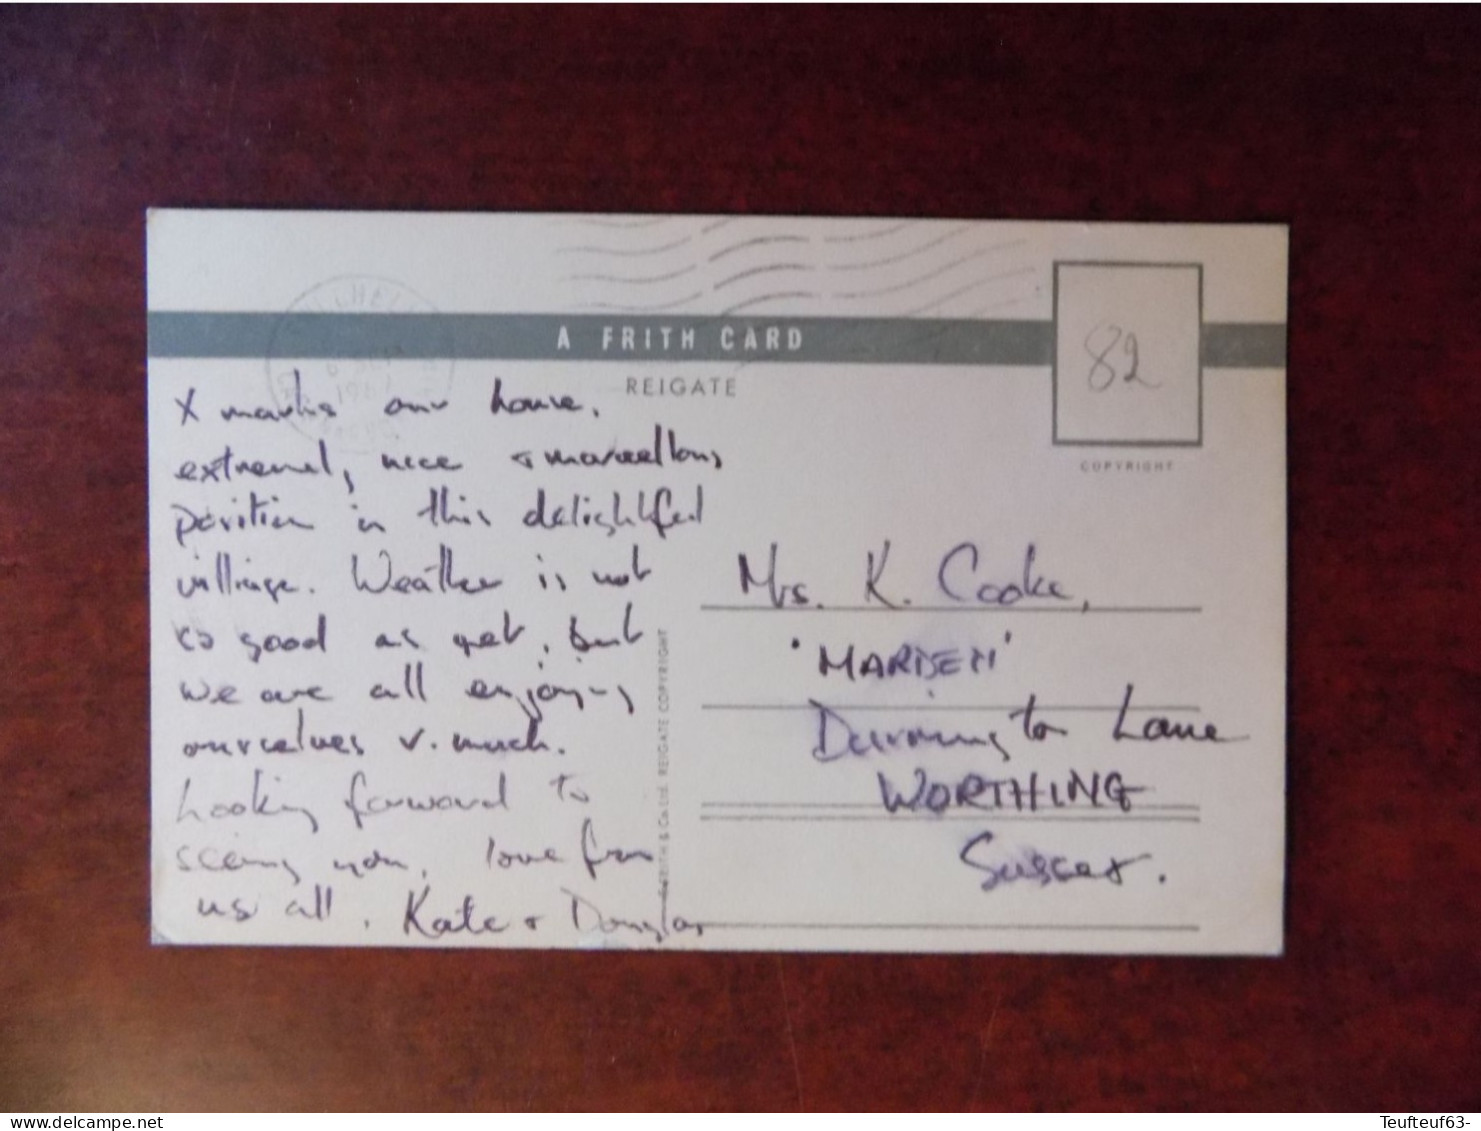 A FRITH CARD
REIGATE
82
COPYRIGHT
X marks our house.
extremely nice & marvellous
position in this delightful
village. Weather is not
so good as yet, but
we are all enjoying
ourselves v. much.
Looking forward to
seeing you, love from
us all. Kate & Douglas
FRITH & Co. Ltd. REIGATE COPYRIGHT
Mrs. K. Cooke,
'MARTSEN'
Durrington Lane
WORTHING
Sussex.
Teufteuf63-